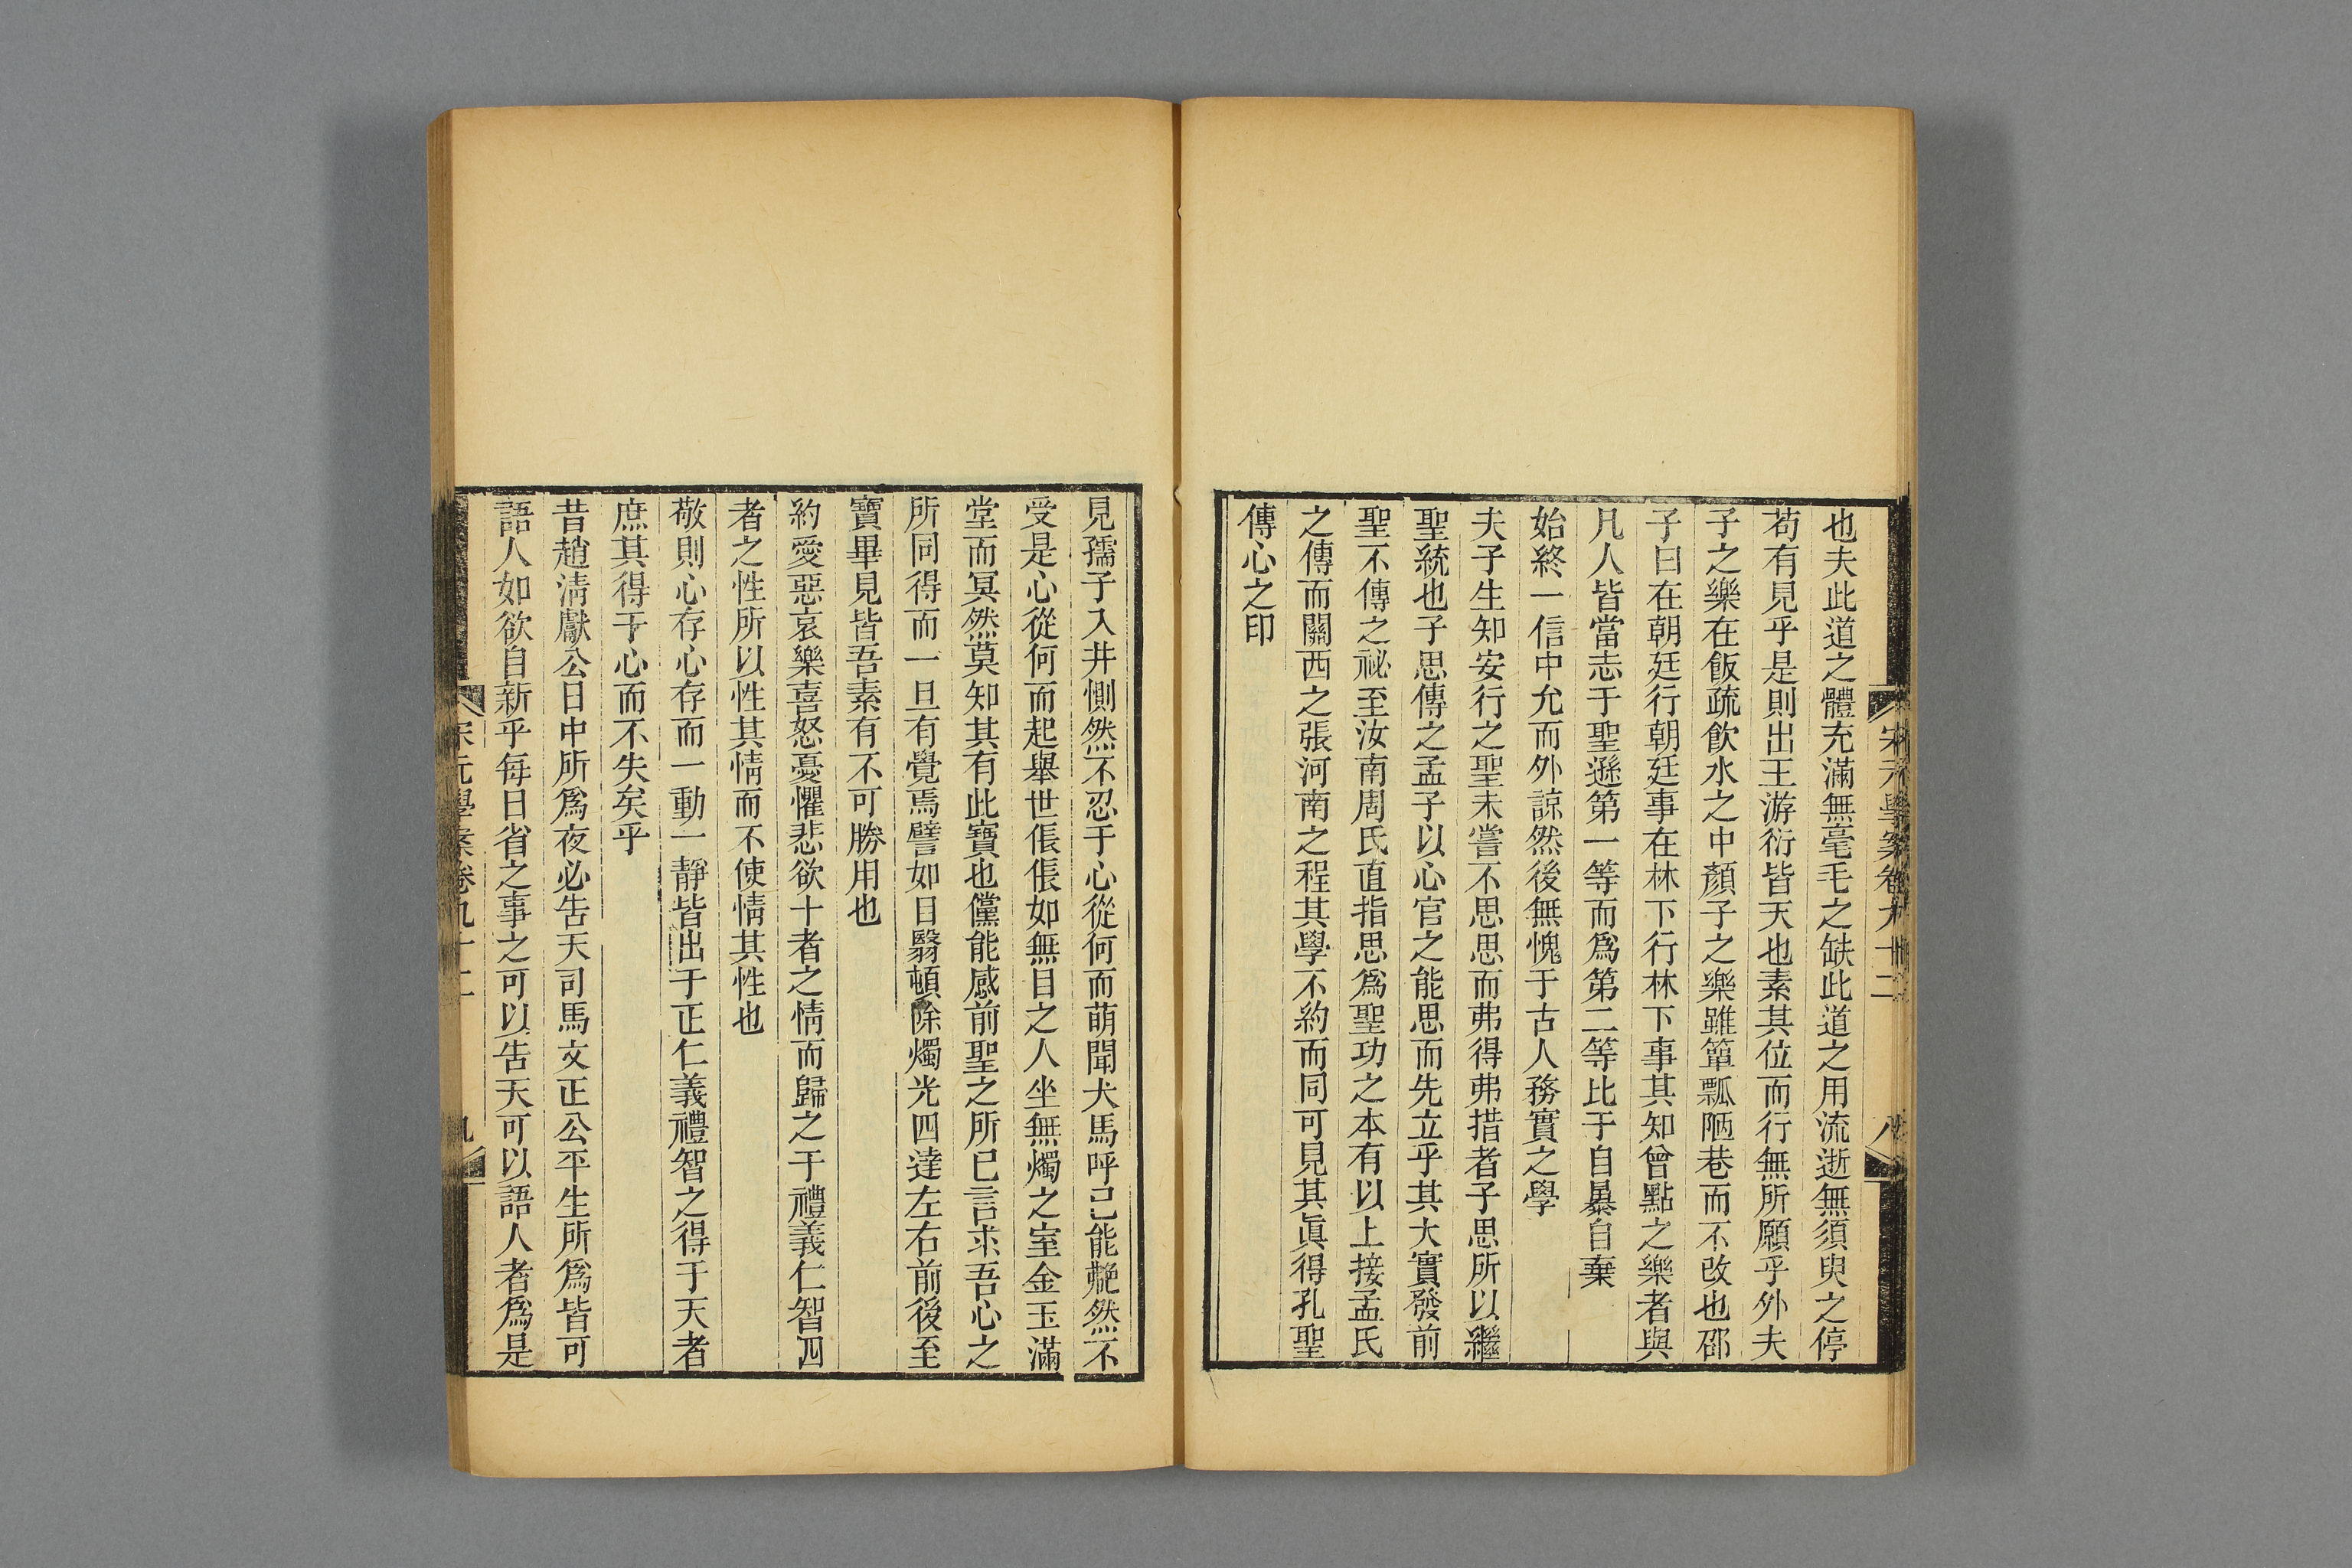 宋元學案卷九十二
八
也夫此道之體充滿無毫毛之缺此道之用流逝無須臾之停
苟有見乎是則出王游衍皆天也素其位而行無所願乎外夫
子之樂在飯疏飲水之中顏子之樂雖簞瓢陋巷而不改也邵
子曰在朝廷行朝廷事在林下行林下事其知曾點之樂者與
凡人皆當志于聖遜第一等而爲第二等比于自暴自棄
始終一信中允而外諒然後無愧于古人務實之學
夫子生知安行之聖未嘗不思思而弗得弗措者子思所以繼
聖統也子思傳之孟子以心官之能思而先立乎其大實發前
聖不傳之祕至汝南周氏直指思爲聖功之本有以上接孟氏
之傳而關西之張河南之程其學不約而同可見其眞得孔聖
傳心之印
見孺子入井惻然不忍于心從何而萌聞犬馬呼己能艴然不
受是心從何而起舉世倀倀如無目之人坐無燭之室金玉滿
堂而冥然莫知其有此寶也儻能感前聖之所已言求吾心之
所同得而一旦有覺焉譬如目翳頓除燭光四達左右前後至
寶畢見皆吾素有不可勝用也
約愛惡哀樂喜怒憂懼悲欲十者之情而歸之于禮義仁智四
者之性所以性其情而不使情其性也
敬則心存心存而一動一靜皆出于正仁義禮智之得于天者
庶其得于心而不失矣乎
昔趙淸獻公日中所爲夜必告天司馬文正公平生所爲皆可
語人如欲自新乎每日省之事之可以告天可以語人者爲是
宋元學案卷九十二
九